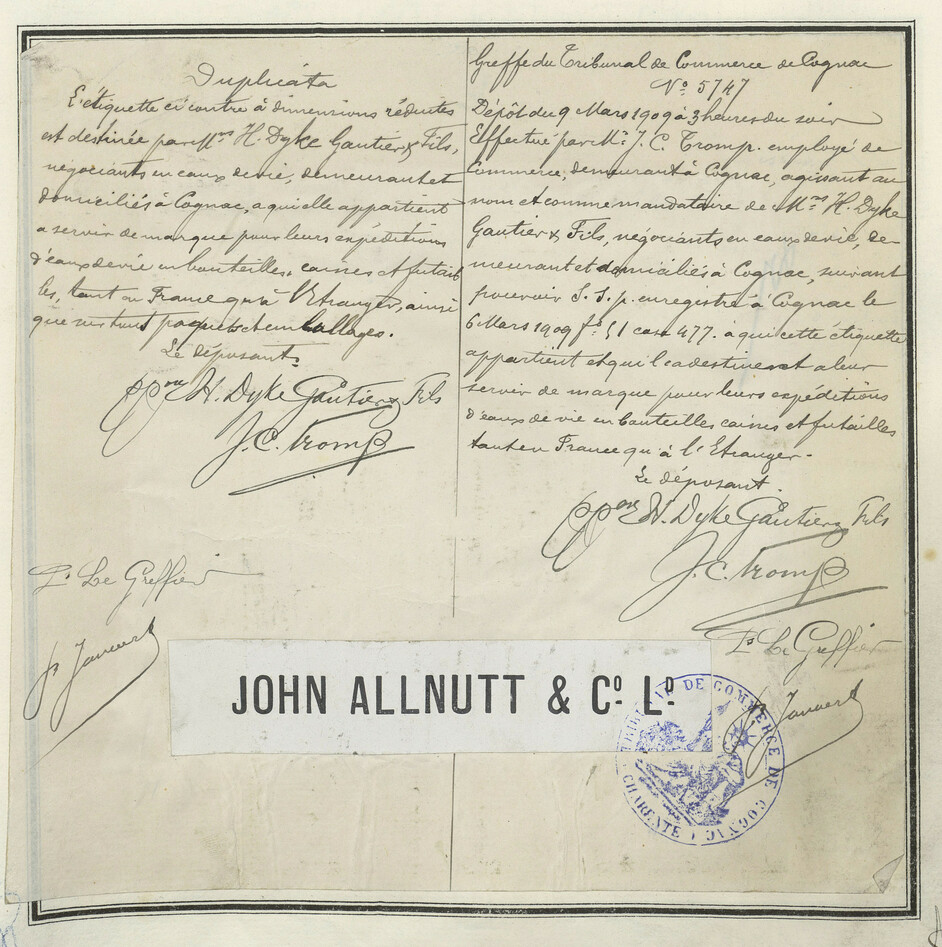 Duplicata
L'étiquette ci contre à dimensions réduites
est destinée par Mrs H. Dyke Gautier & Fils,
négociants en eaux de vie, demeurant et
domiciliés à Cognac, a qui elle appartient
a servir de marque pour leurs expéditions
d'eaux de vie en bouteilles, caisses et futail
les, tant en France qu'à l'Etranger, ainsi
que sur tous paquets et emballages.
Le déposant.
ppon H. Dyke Gautier & Fils
J. C. Tromp
Pr Le Greffier
Greffe du Tribunal de Commerce de Cognac
No 5747
Dépôt du 9 Mars 1909 à 3 heures du soir
Effectué par Mr J. C. Tromp. employé de
Commerce, demeurant à Cognac, agissant au
nom et comme mandataire de Mrs H. Dyke
Gautier & Fils, négociants en eaux de vie, de-
meurant et domiciliés à Cognac, suivant
pouvoir S. S. p. enregistré à Cognac le
6 Mars 1909 fo 51 case 477. à qui cette étiquette
appartient et qui la destinent a leur
servir de marque pour leurs expéditions
d'eaux de vie en bouteilles caisses et futailles
tant en France qu'à l'Etranger.
Le déposant.
ppon H. Dyke Gautier & Fils
J. C. Tromp
Pr Le Greffier
JOHN ALLNUTT & Co. LD.
TRIBUNAL DE COMMERCE DE COGNAC
CHARENTE